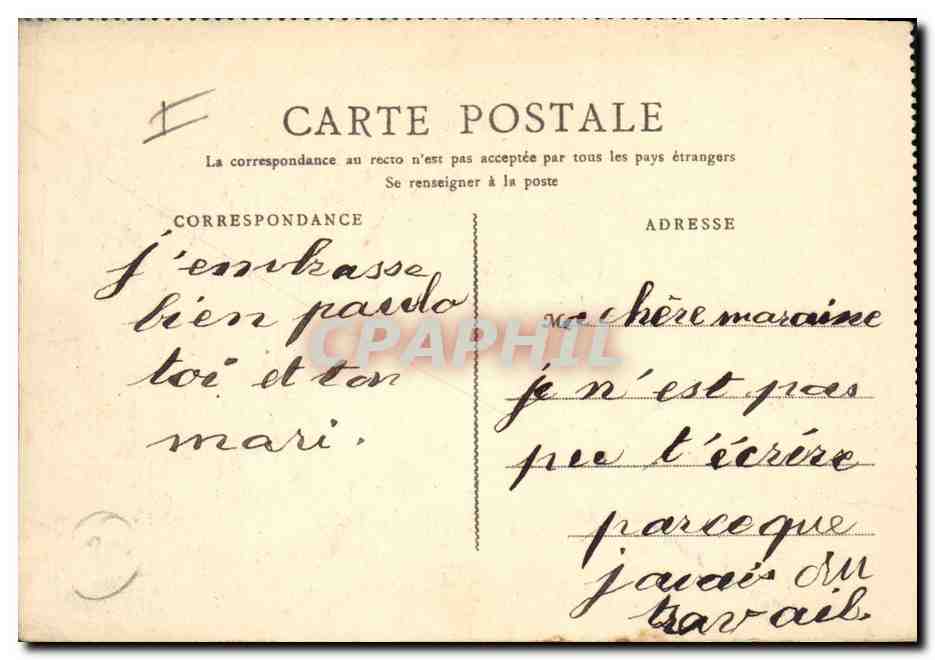 CARTE POSTALE
La correspondance au recto n'est pas acceptée par tous les pays étrangers
Se renseigner à la poste
CORRESPONDANCE
j'embrasse
bien paulo
toi et ton
mari.
ADRESSE
chère maraine
je n'est pas
peu t'écrire
parceque
javais du
travail.
CPAPHIL